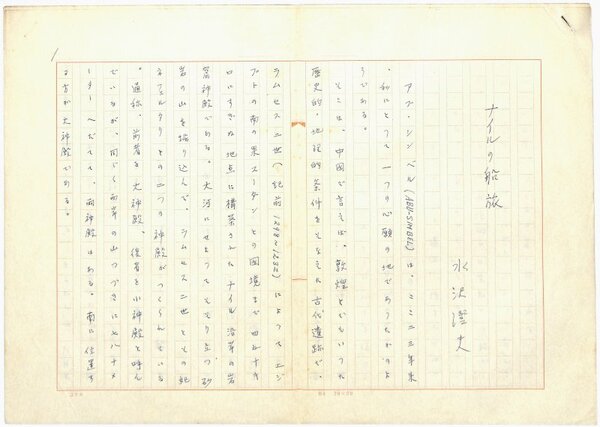 1
ナイルの船旅
水沢澄夫
アブ・シンベル(ABU-SIMBEL)は、ここ二三年来
、私にとって一つの心願の地であったがのよ
うである。
そこは、中国で言えば、敦煌とでもいった
歴史的、地理的条件をそなえた古代遺跡で、
ラムセス二世(紀前1298~1232)によってエジ
プトの南の果スーダンとの国境まで四五十キ
ロにすぎぬ地点に構築されたナイル沿岸の岩
窟神殿である。大河にせまってそそり立つ砂
岩の山を掘り込んで、ラムセス二世とその妃
ネフェルタリとの二つの神殿がつくられている
。通称、前者を大神殿、後者を小神殿と呼ん
でいるが、同じく西岸の山つづきに七八十メ
ーターへだてて、両神殿はある。南に位置す
る方が大神殿である。